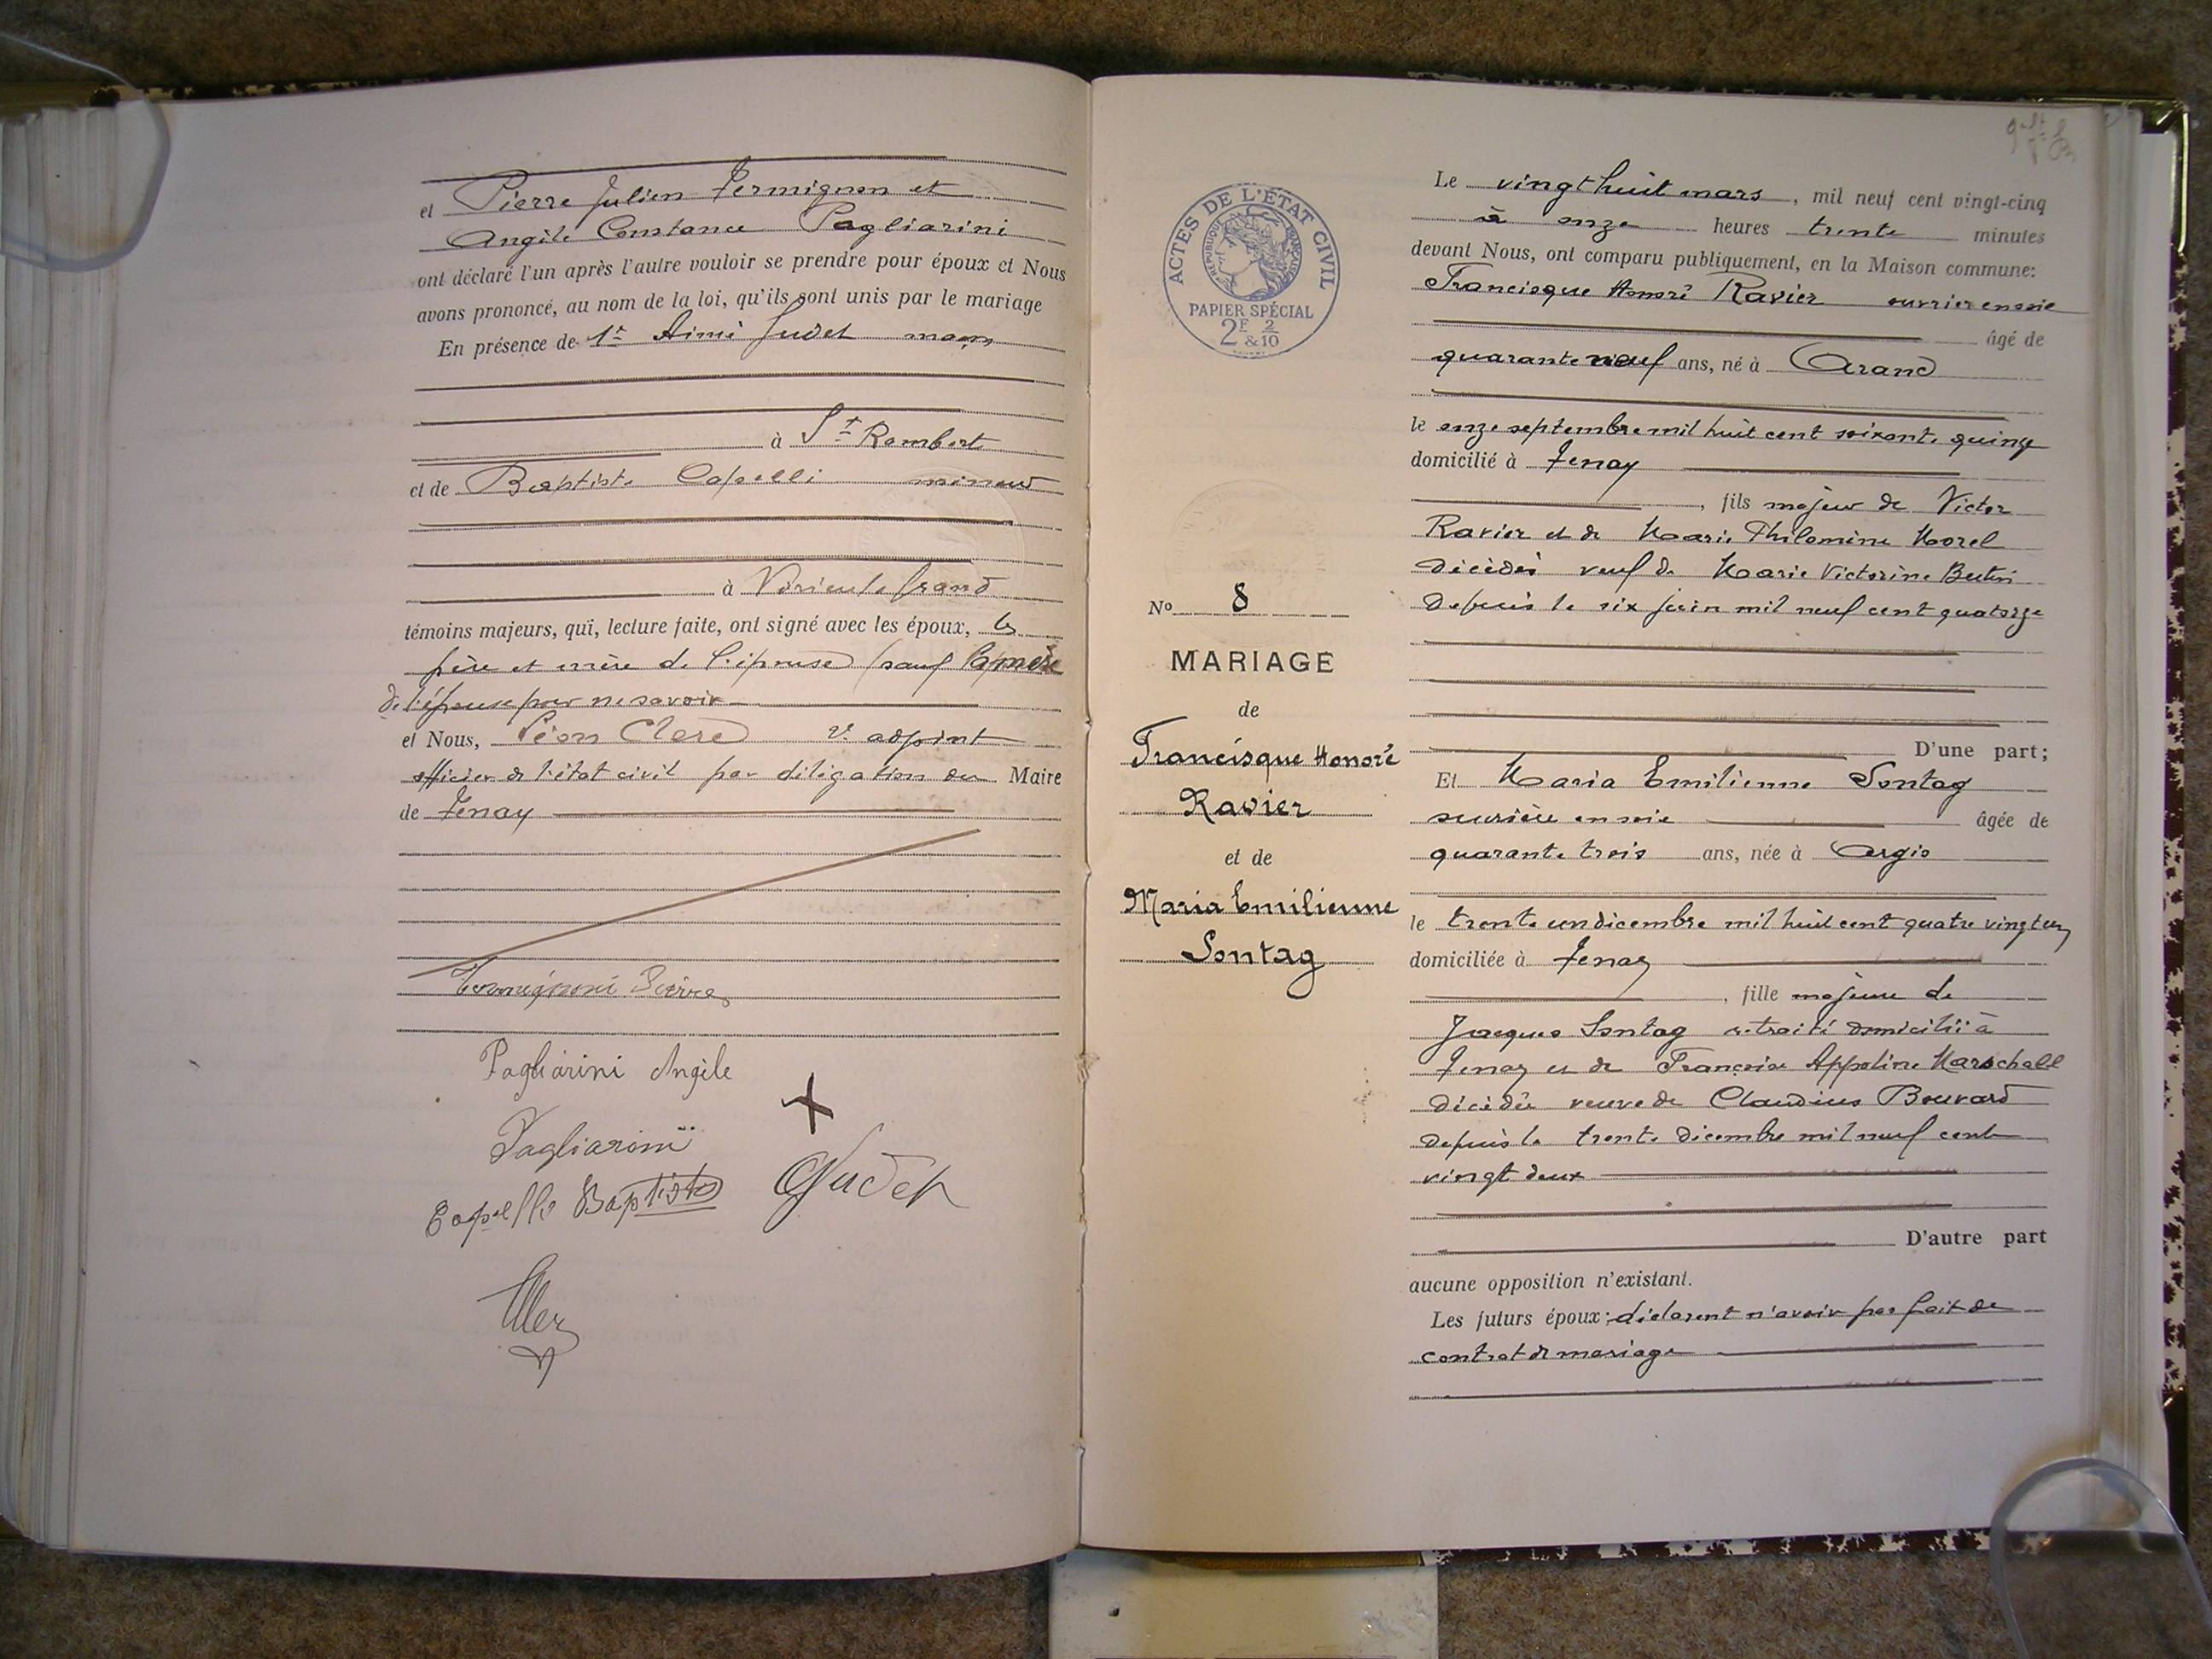 et Pierre Julien Fermignon et
Angèle Constance Pagliarini
ont déclaré l'un après l'autre vouloir se prendre pour époux et Nous
avons prononcé, au nom de la loi, qu'ils sont unis par le mariage
En présence de 1º Aimé Judet maçon
à St Rambert
et de Baptiste Capelli mineur
à Virieu le Grand
témoins majeurs, qui, lecture faite, ont signé avec les époux, les
père et mère de l'épouse sauf la mère
de l'épouse pour ne savoir
et Nous, Léon Clerc 2e adjoint
officier de l'état civil par délégation du Maire
de Tenay
Pierre
Pagliarini Angèle
Pagliarini
Capelli Baptiste
Judet
ACTES DE L'ÉTAT CIVIL
RÉPUBLIQUE FRANÇAISE
PAPIER SPÉCIAL
2F 2
& 10
No 8
MARIAGE
de
Francisque Honoré
Ravier
et de
Maria Emilienne
Sontag
Le vingt huit mars, mil neuf cent vingt-cinq
à onze heures trente minutes
devant Nous, ont comparu publiquement, en la Maison commune:
Francisque Honoré Ravier ouvrier en soie
âgé de
quarante neuf ans, né à Arand
le onze septembre mil huit cent soixante quinze
domicilié à Tenay
, fils majeur de Victor
Ravier et de Marie Philomène Morel
décédés veuf de Marie Victorine
depuis le six juin mil neuf cent quatorze
D'une part;
Et Maria Emilienne Sontag
ouvrière en soie âgée de
quarante trois ans, née à Argis
le trente un décembre mil huit cent quatre vingt un
domiciliée à Tenay
, fille majeure de
Jacques Sontag retraité domicilié à
Tenay et de Françoise Appoline Marschall
décédée veuve de Claudius Bouvard
depuis le trente décembre mil neuf cent
vingt deux
D'autre part
aucune opposition n'existant.
Les futurs époux: déclarent n'avoir pas fait de
contrat de mariage